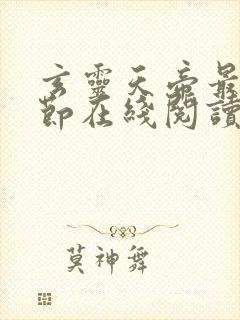 玄靈天帝最
節在綫閱讀
莫神舞